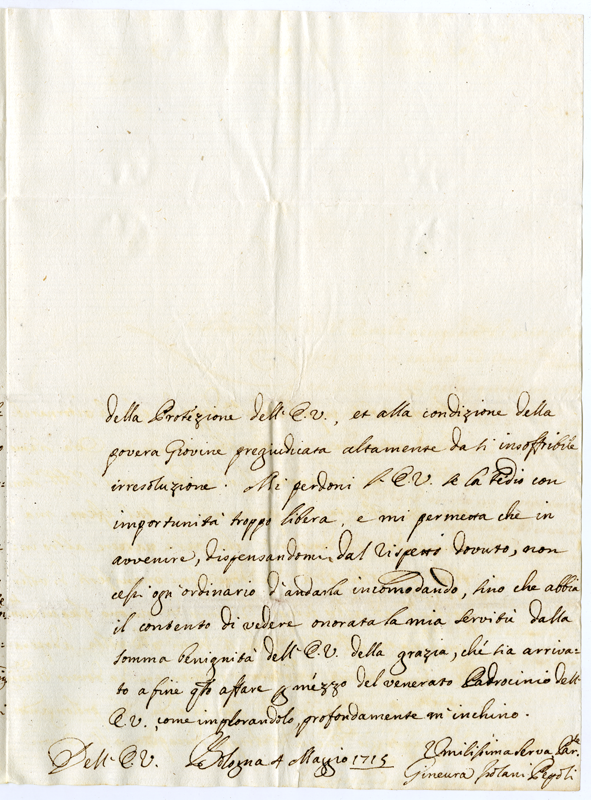 della Protezione dell' E.V., et alla condizione della
povera Giovine pregiudicata altamente da sì insoffribile
irresoluzione. Mi perdoni l'E.V. se la tedio con
importunità troppo libera, e mi permetta che in
avvenire, dispensandomi dal rispetto dovuto, non
cessi ogn' ordinario d'andarla incomodando, sino che abbia
il contento di vedere onorata la mia servitù dalla
somma benignità dell' E.V. della grazia, che sia arriva=
to a fine qto affare p mezzo del venerato Padrocinio dell'
E.V., come implorandolo, profondamente m'inchino.
Dell' E.V. Bologna 4 Maggio 1715
Umilissima serva
Ginevra Isolani Pepoli